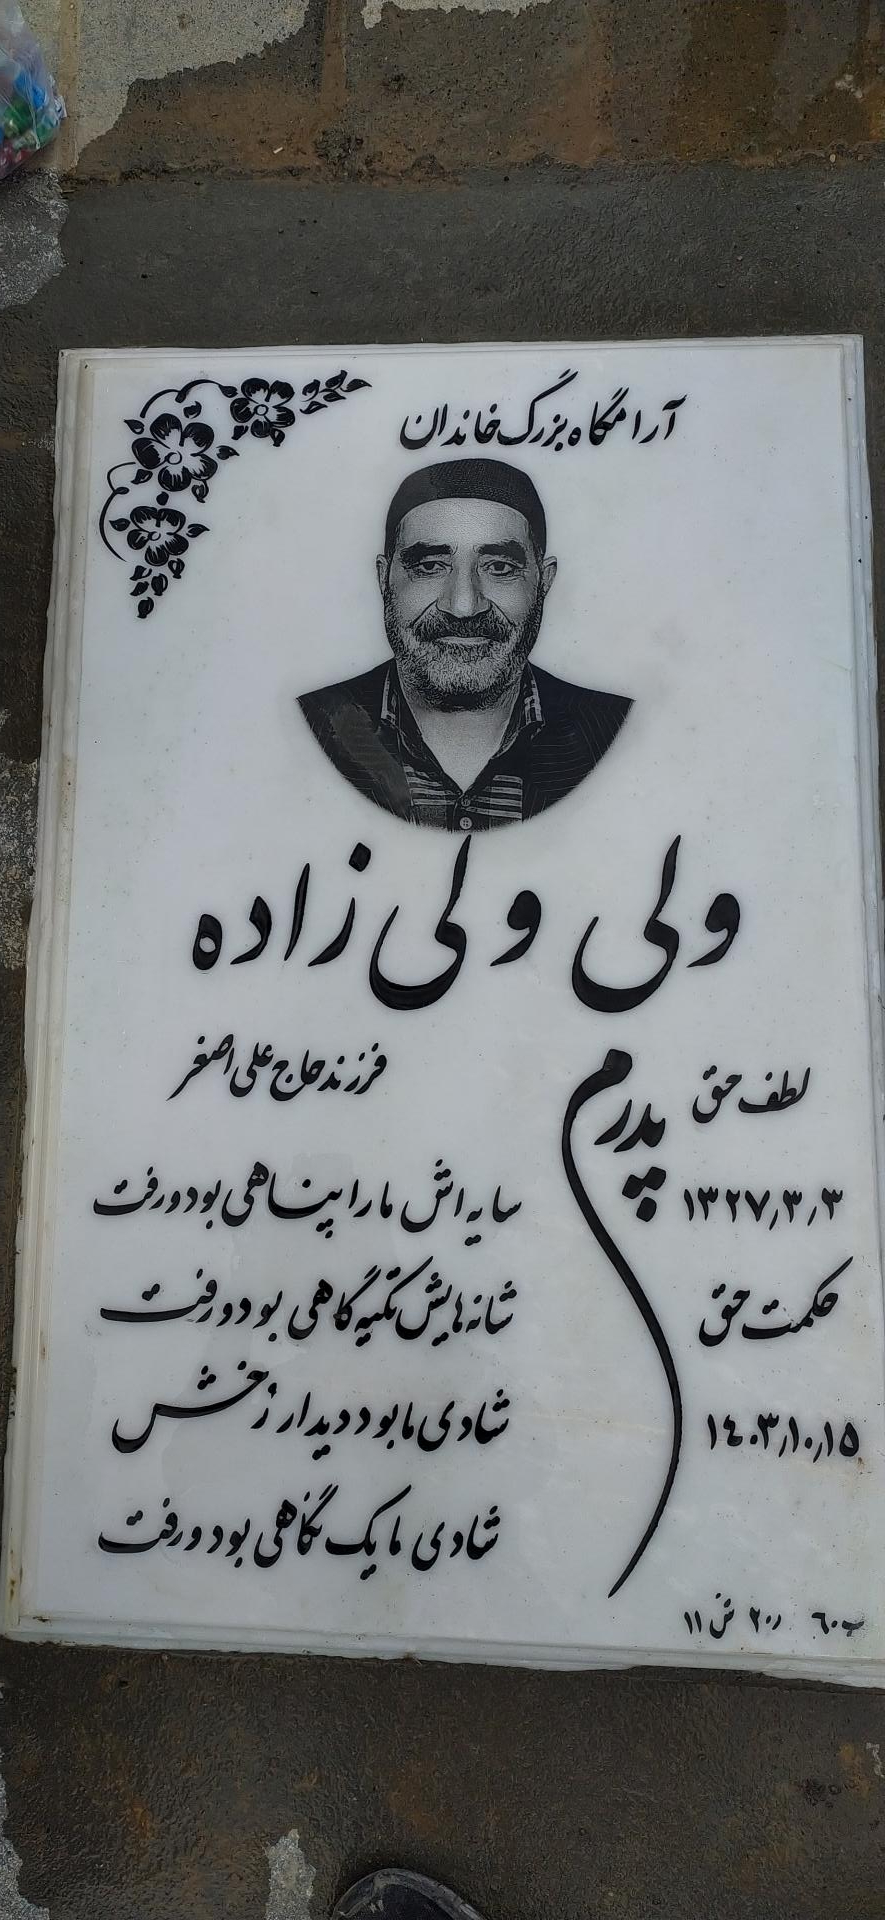 آرامگاه بزرگ خاندان
ولی ولی زاده
فرزند حاج علی اصغر
لطف حق
۱۳۲۷٫۳٫۳
حکمت حق
۱۴۰۳٫۱۰٫۱۵
پدرم
سایه اش ما را پناهی بود و رفت
شانه هایش تکیه گاهی بود و رفت
شادی ما بود دیدار رخش
شادی ما یک نگاهی بود و رفت
ب ۶۰ ر ۲۰ ش ۱۱